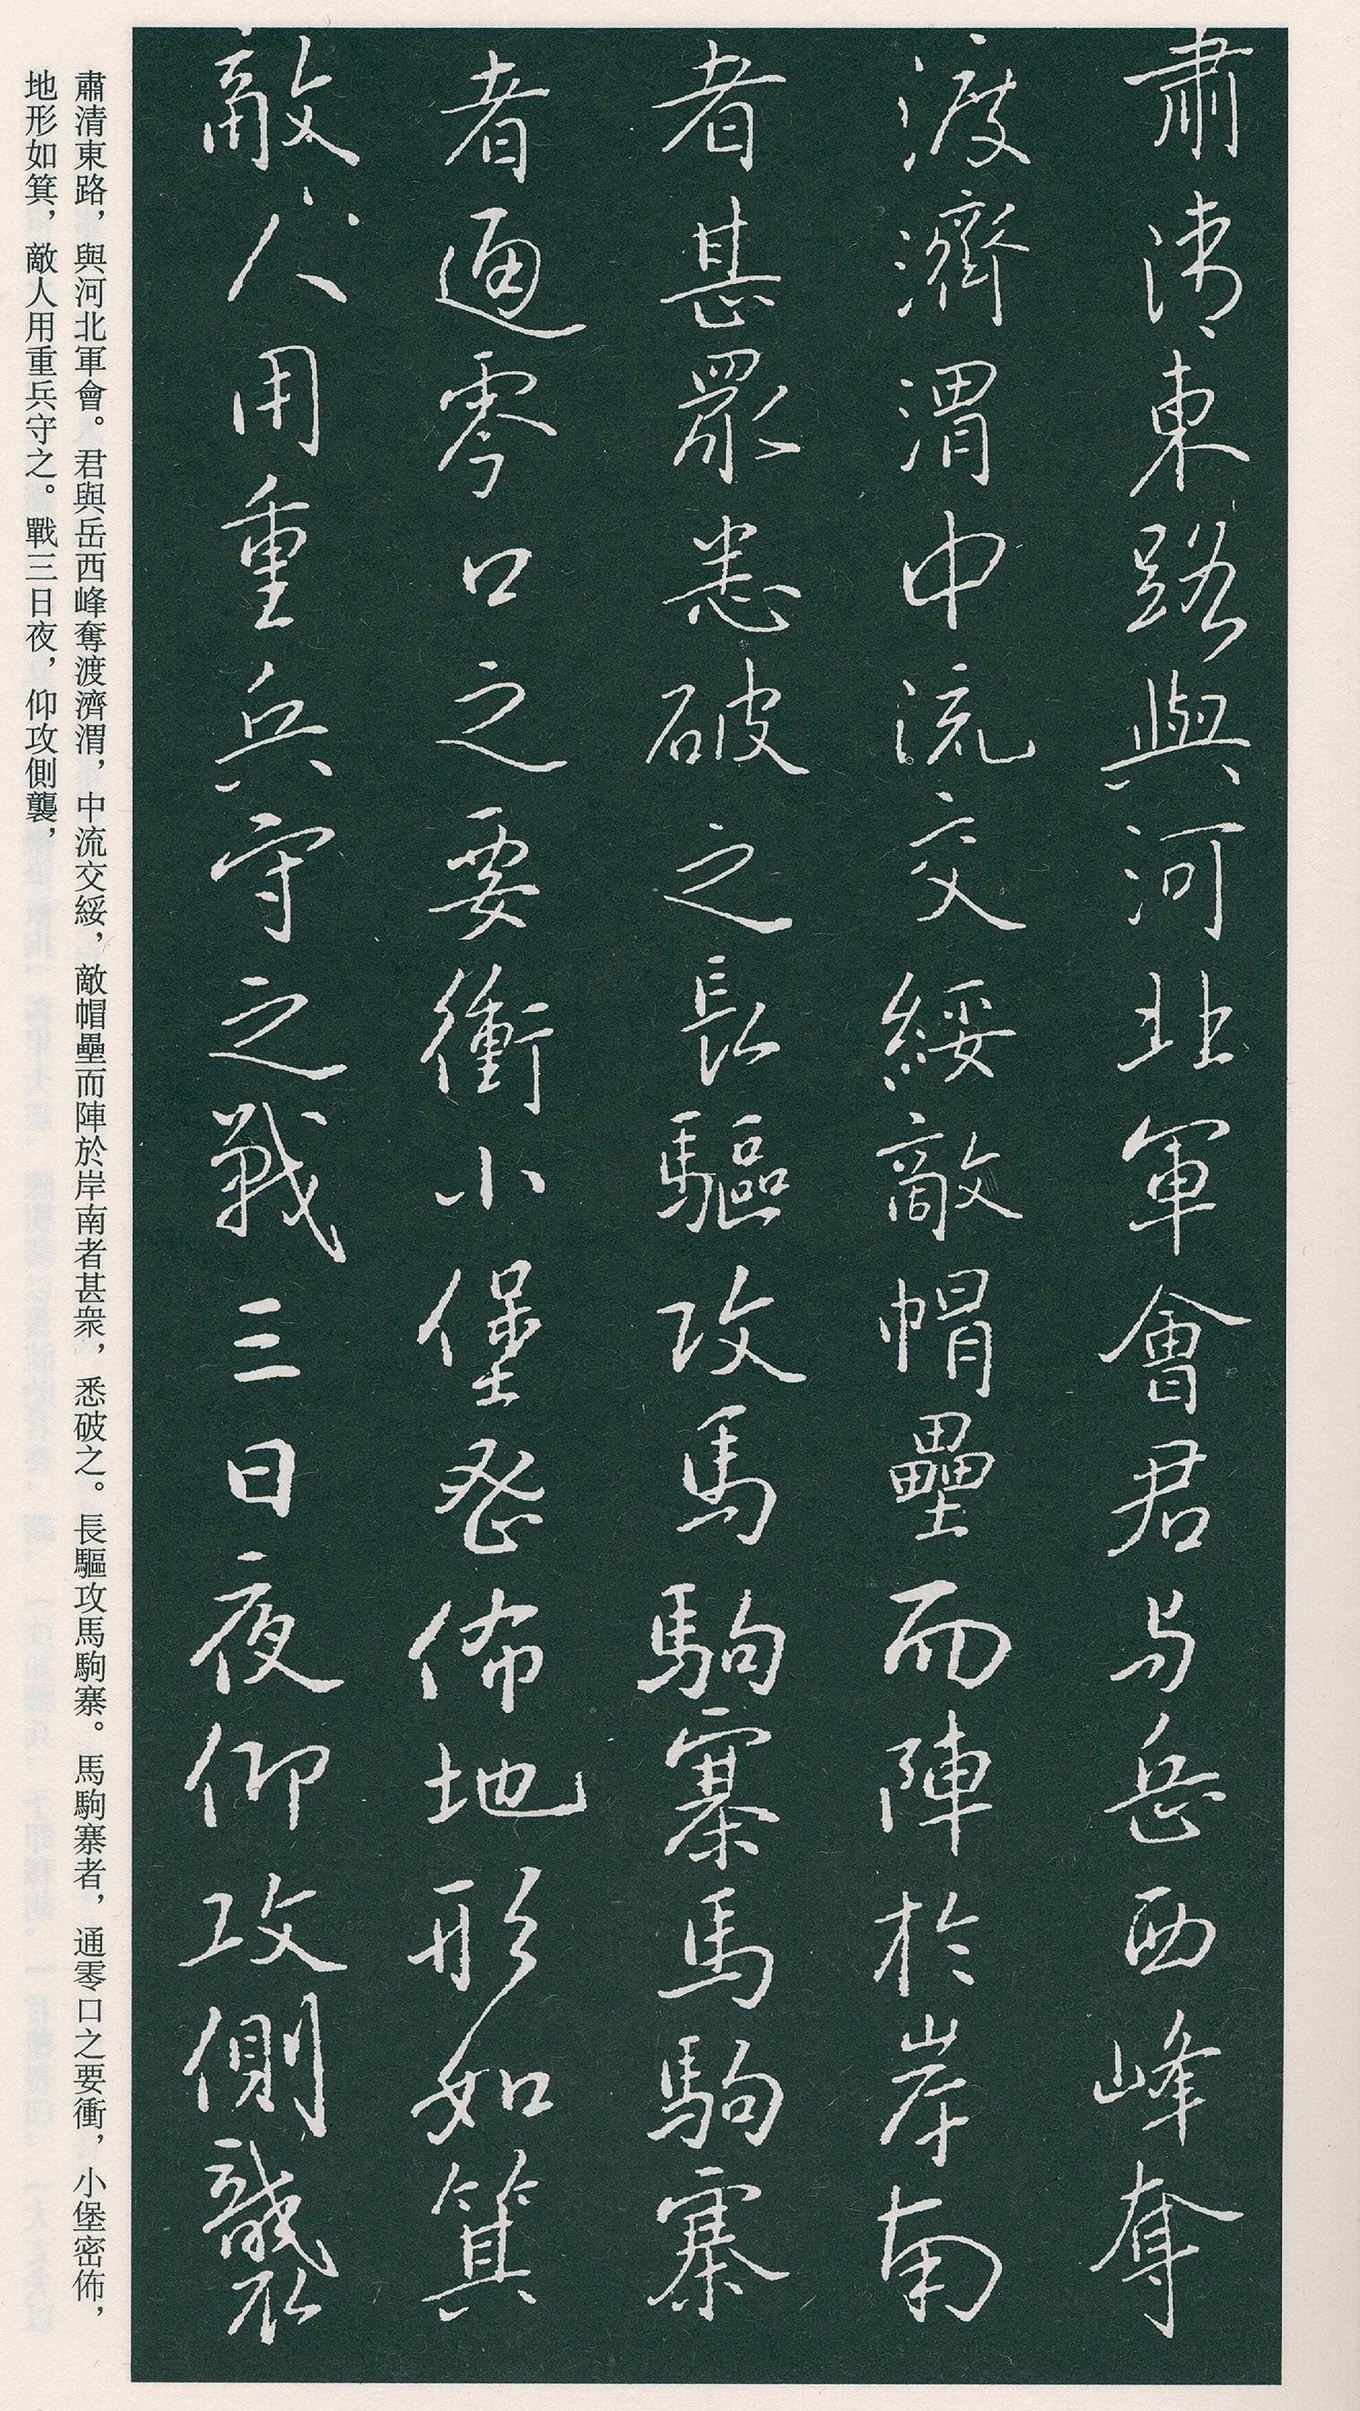 肅清東路與河北軍會君与岳西峰奪
渡濟渭中流交綏敵帽壘而陣於岸南
者甚眾悉破之長驅攻馬駒寨馬駒寨
者通零口之要衝小堡密佈地形如箕
敵人用重兵守之戰三日夜仰攻側襲
肅清東路，與河北軍會。君與岳西峰奪渡濟渭，中流交綏，敵帽壘而陣於岸南者甚衆，悉破之。長驅攻馬駒寨。馬駒寨者，通零口之要衝，小堡密佈，
地形如箕，敵人用重兵守之。戰三日夜，仰攻側襲，